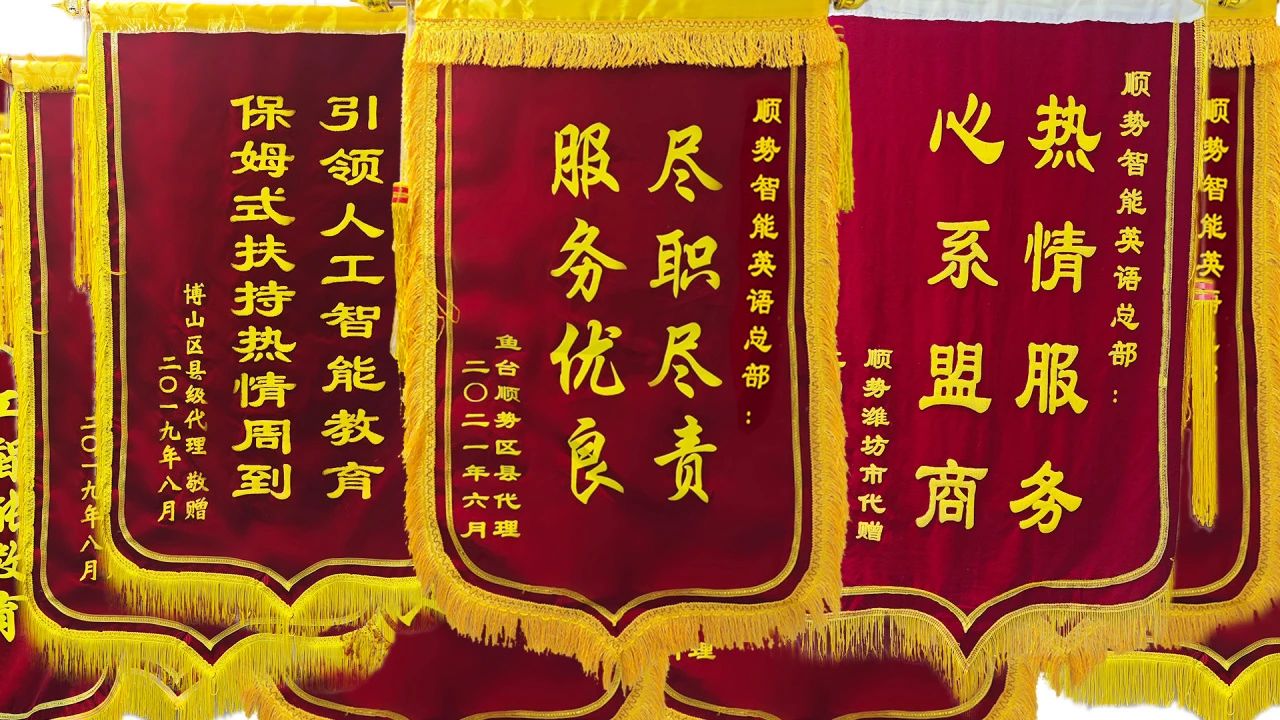 引领人工智能教育
保姆式扶持热情周到
博山区县级代理 敬赠
二〇一九年八月
二〇一九年八月
顺势智能英语总部：
尽职尽责
服务优良
鱼台顺势区县代理
二〇二一年六月
顺势智能英语总部：
热情服务
心系盟商
顺势潍坊市代赠
顺势智能英语